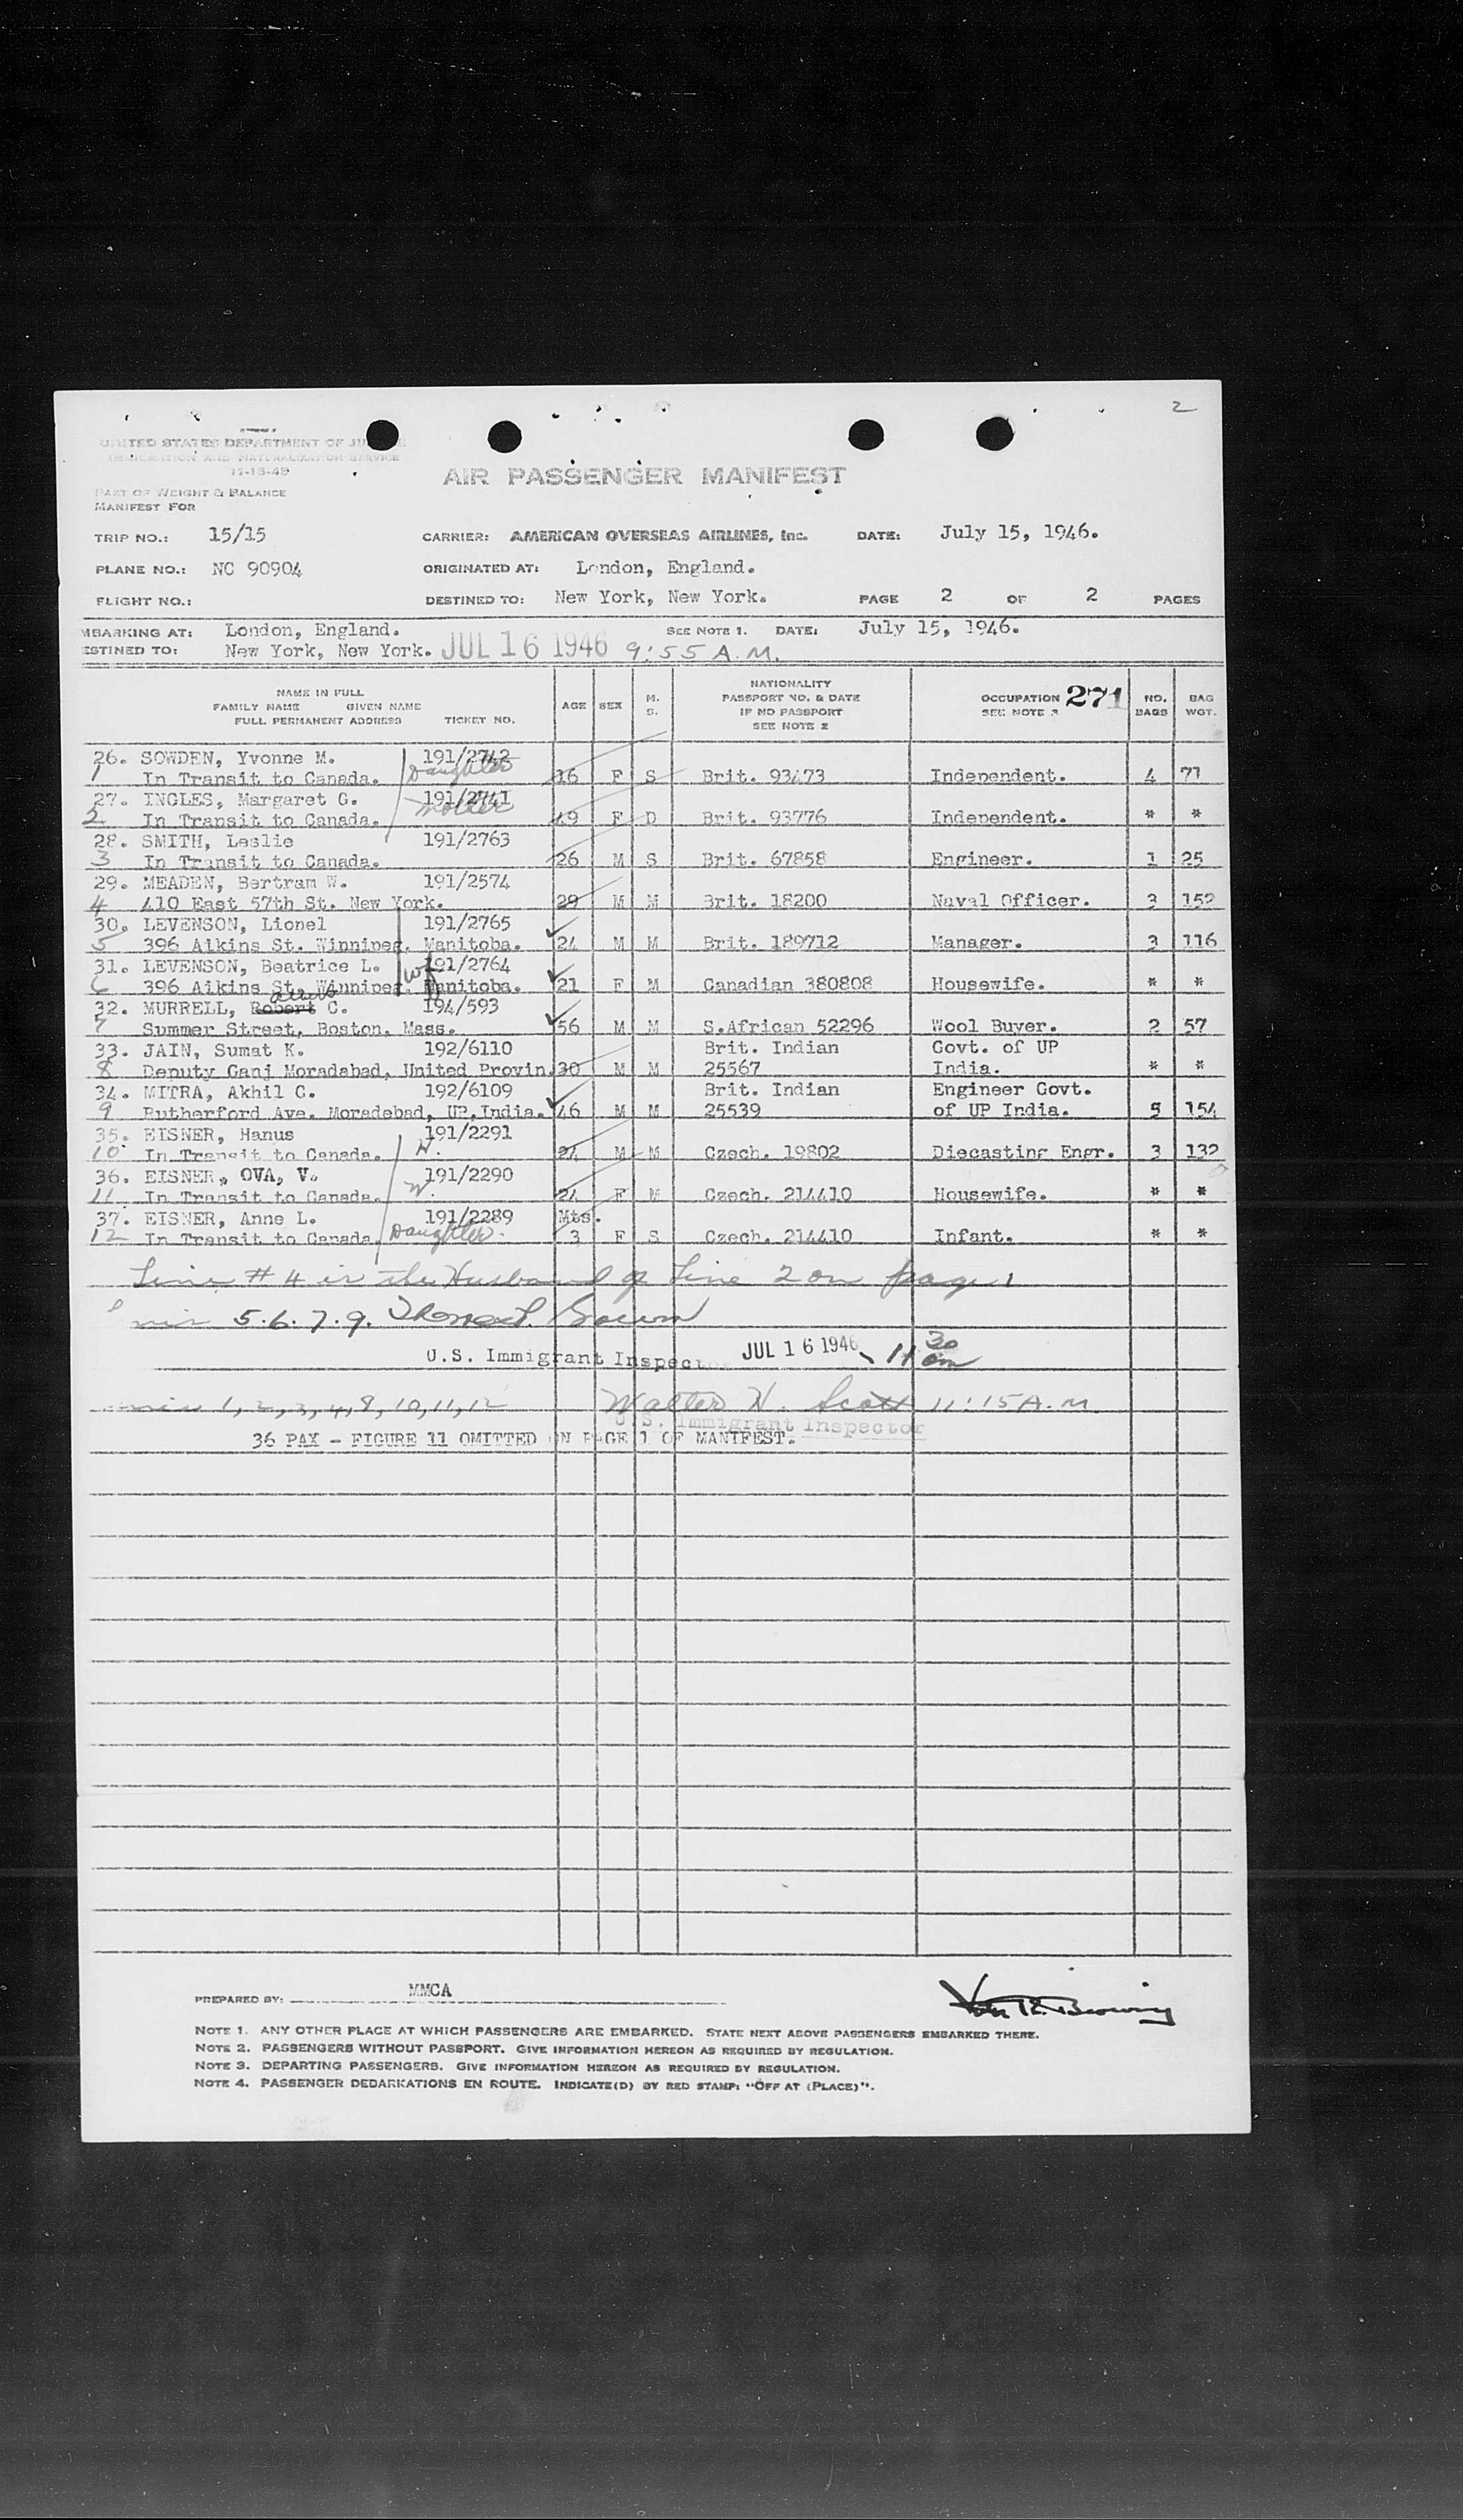 2
UNITED STATES DEPARTMENT OF JUSTICE
IMMIGRATION AND NATURALIZATION SERVICE
11-15-45
AIR PASSENGER MANIFEST
PART OF WEIGHT & BALANCE
MANIFEST FOR
TRIP NO.: 15/15 CARRIER: AMERICAN OVERSEAS AIRLINES, Inc. DATE: July 15, 1946.
PLANE NO.: NC 90904 ORIGINATED AT: London, England.
FLIGHT NO.: DESTINED TO: New York, New York. PAGE 2 OF 2 PAGES
MBARKING AT: London, England. SEE NOTE 1. DATE: July 15, 1946.
ESTINED TO: New York, New York. JUL 16 1946 9:55 A.M.
NAME IN FULL
FAMILY NAME GIVEN NAME
FULL PERMANENT ADDRESS TICKET NO. AGE SEX M. S. NATIONALITY PASSPORT NO. & DATE IF NO PASSPORT SEE NOTE 2 OCCUPATION SEE NOTE 3 271 NO. BAGS BAG WGT.
26. SOWDEN, Yvonne M. 191/2742
1 In Transit to Canada. Daughter 16 F S Brit. 93473 Independent. 4 77
27. INGLES, Margaret G. 191/2741
2 In Transit to Canada. Mother 49 F D Brit. 93776 Independent. * *
28. SMITH, Leslie 191/2763
3 In Transit to Canada. 26 M S Brit. 67858 Engineer. 1 25
29. MEADEN, Bertram W. 191/2574
4 410 East 57th St. New York. 29 M M Brit. 18200 Naval Officer. 3 152
30. LEVENSON, Lionel 191/2765
5 396 Aikins St. Winnipeg, Manitoba. 24 M M Brit. 189712 Manager. 3 116
31. LEVENSON, Beatrice L. wf 191/2764
6 396 Aikins St. Winnipeg, Manitoba. 21 F M Canadian 380808 Housewife. * *
32. MURRELL, Robert C. 194/593
7 Summer Street, Boston, Mass. 56 M M S.African 52296 Wool Buyer. 2 57
33. JAIN, Sumat K. 192/6110 Brit. Indian Govt. of UP
8 Deputy Ganj Moradabad, United Provin. 30 M M 25567 India. * *
34. MITRA, Akhil C. 192/6109 Brit. Indian Engineer Govt.
9 Rutherford Ave. Moradebad, UP. India. 46 M M 25539 of UP India. 5 154
35. EISNER, Hanus 191/2291
10 In Transit to Canada. H. 24 M M Czech. 19802 Diecasting Engr. 3 132
36. EISNER, OVA, V. 191/2290
11 In Transit to Canada. W. 24 F M Czech. 214410 Housewife. * *
37. EISNER, Anne L. 191/2289 Mts.
12 In Transit to Canada. Daughter. 3 F S Czech. 214410 Infant. * *
Line # 4 is the Husband of Line 2 on page 1
5.6.7.9.
U.S. Immigrant Inspector JUL 16 1946 11 30 am
1, 2, 3, 4, 8, 10, 11, 12 Walter H. Scott 11:15 A.M.
U.S. Immigrant Inspector
36 PAX - FIGURE 11 OMITTED ON PAGE 1 OF MANIFEST.
PREPARED BY: MMCA
NOTE 1. ANY OTHER PLACE AT WHICH PASSENGERS ARE EMBARKED. STATE NEXT ABOVE PASSENGERS EMBARKED THERE.
NOTE 2. PASSENGERS WITHOUT PASSPORT. GIVE INFORMATION HEREON AS REQUIRED BY REGULATION.
NOTE 3. DEPARTING PASSENGERS. GIVE INFORMATION HEREON AS REQUIRED BY REGULATION.
NOTE 4. PASSENGER DEBARKATIONS EN ROUTE. INDICATE(D) BY RED STAMP: "OFF AT (PLACE)".